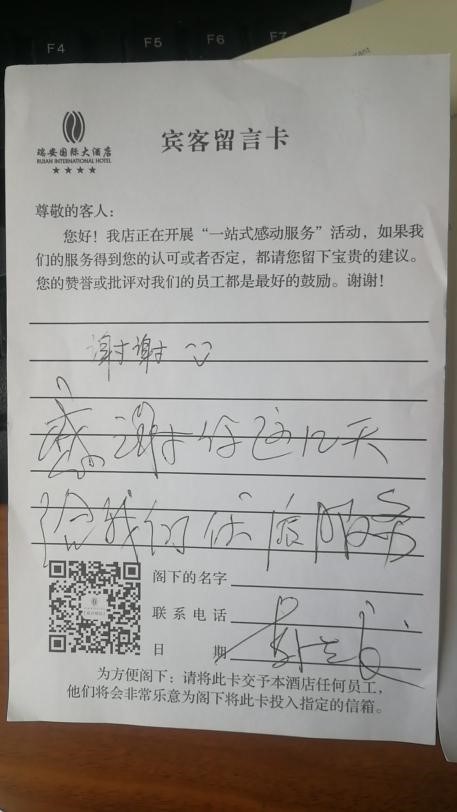 F4 F5 F6 F7
瑞安国际大酒店
RUIAN INTERNATIONAL HOTEL
宾客留言卡
尊敬的客人：
您好！我店正在开展“一站式感动服务”活动，如果我
们的服务得到您的认可或者否定，都请您留下宝贵的建议。
您的赞誉或批评对我们的员工都是最好的鼓励。谢谢！
谢谢
感谢你这几天
给我们优质服务
阁下的名字
联系电话
日期
为方便阁下：请将此卡交予本酒店任何员工，
他们将会非常乐意为阁下将此卡投入指定的信箱。